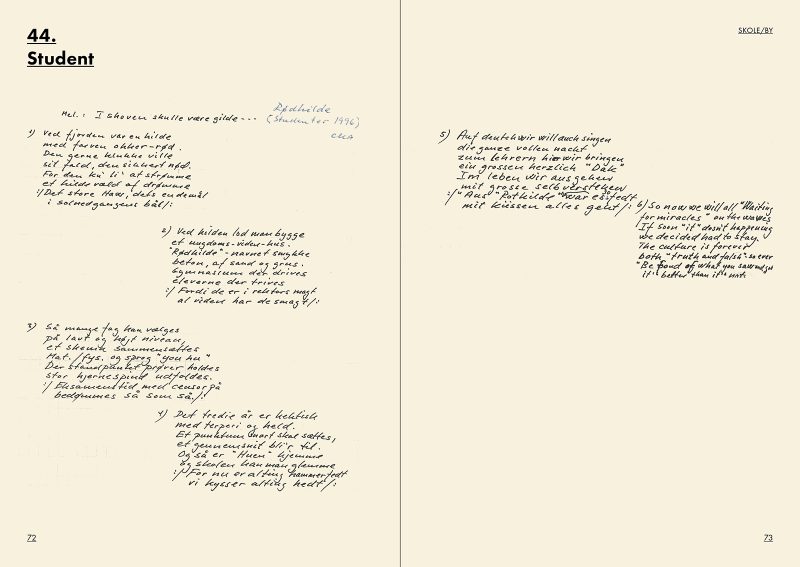 44.
Student
SKOLE/BY
Mel.: I skoven skulle være gilde ---
Rødhilde
(Studenter 1996)
1) Ved fjorden var en kilde
med farven okker-rød.
Den gerne klukke ville
sit fald, den sikkert nød.
For den ku' li' at strømme
et kildevæld af drømme
:/ Det store Hav, dets endemål
i solnedgangens bål/:
2) Ved kilden lod man bygge
et ungdoms-viden-hus.
"Rødkilde"-navnet smykke
beton, af sand og grus.
Gymnasium der drives
eleverne der trives
:/ Fordi de er i rektors magt
al viden har de smagt/:
3) Så mange fag kan vælges
på lavt og højt niveau,
et skema sammensættes
Mat./fys. og sprog "you know"
Der standpunkt prøver holdes
stor hjernespind udfoldes.
:/ Eksamenstid, med censor på
bedømmes så som så./:
4) Det tredie år er hektisk
med terperi og held.
Et punktum snart skal sættes,
et gennemsnit bli'r til.
Og så er "Huen" hjemme
og skolen kan man glemme
:/ For nu er alting hammerfedt
vi kysser alting hedt/:
5) Auf deutsch wir will auch singen
die ganze vollen nacht
zum lehrern hier wir bringen
ein grossen herzlich "Dak"
Im leben wir ausgehen
mit grosse selbverstehen
:/ "Aus" Rotkilde "war es jedt
mit küssen alles geht/:
6) So now we will all "Waiting
for miracles" on the waves
If soon "it" doesn't happening
we decided had to stay.
The culture is forever
both "truth and falsh" so ever
"Be fond of what you save and get
it is better than it is not:
72
73